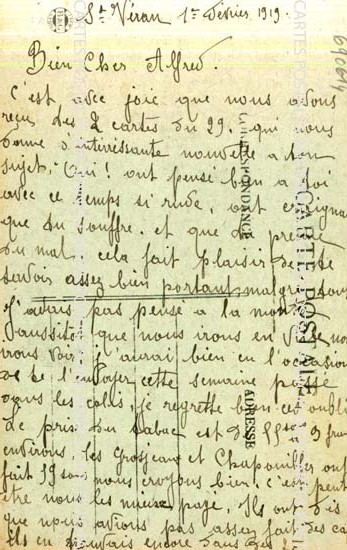 St Véran 1er Février 1919.
Bien Cher Alfred.
C'est avec joie que nous avons
reçu des 2 cartes du 29. qui nous
donne d'intéressante nouvelle a ton
sujet, Oui! ont pense bien a toi
avec ce temps si rude, ont craignait
que du souffre. et que du prenne
du mal. cela fait plaisir de te
savoir assez bien portant, malgré tout
J'avais pas pensé a la
aussitôt que nous irons en
vous voir j'aurai bien eu l'occasion
de te l'envoyer cette semaine passé
dans les colis, je regrette bien cet oubli
Le prix du tabac est de 55 sous 3 francs
environs, les Grosjean et Chapouilles ont
fait 59 sous nous croyons bien. c'est peut
être nous les mieux payé, Ils ont dis
que nous avions pas assez fait des
ils en
CARTE POSTALE
CORRESPONDANCE
ADRESSE
690614